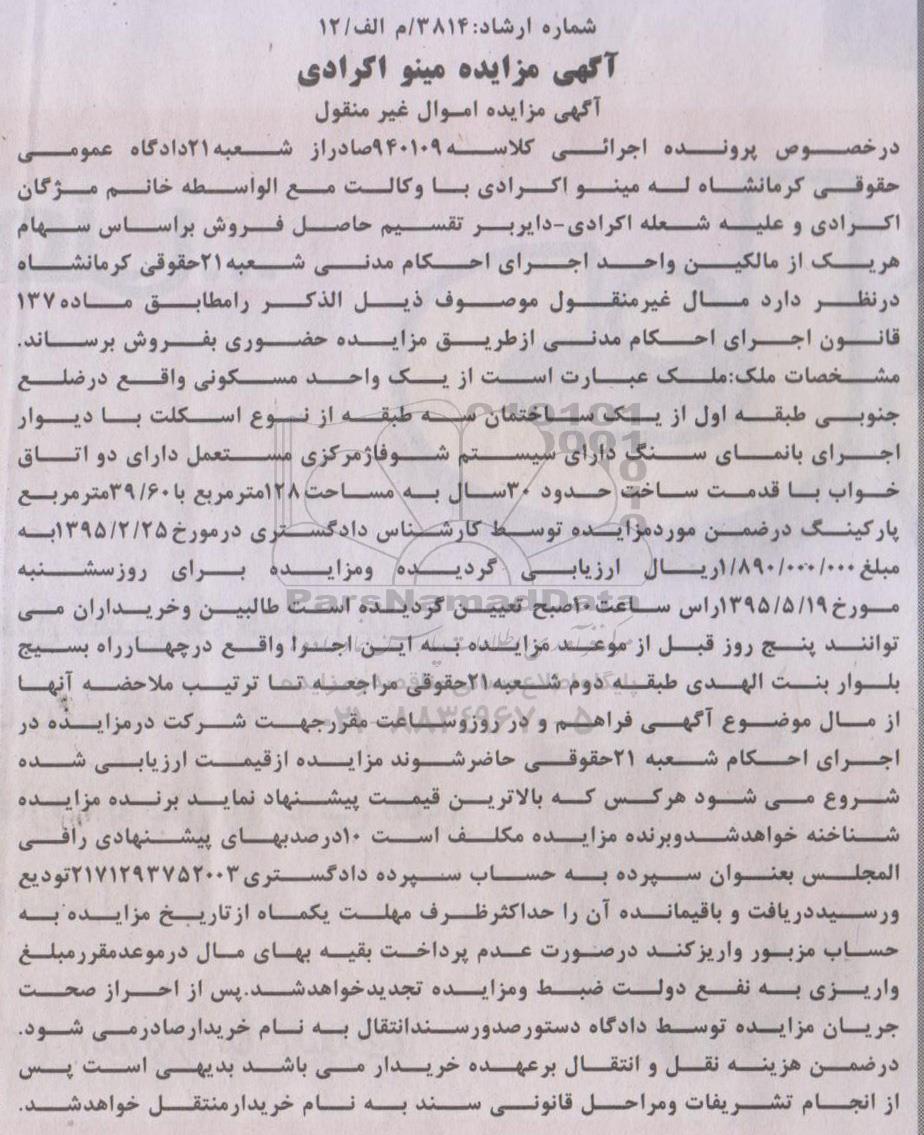 شماره ارشاد:۳۸۱۴/م الف/۱۲
آگهی مزایده مینو اکرادی
آگهی مزایده اموال غیر منقول
درخصوص پرونده اجرائی کلاسه ۹۴۰۱۰۹صادراز شعبه۲۱دادگاه عمومی
حقوقی کرمانشاه له مینو اکرادی با وکالت مع الواسطه خانم مژگان
اکرادی و علیه شعله اکرادی-دایربر تقسیم حاصل فروش براساس سهام
هریک از مالکین واحد اجرای احکام مدنی شعبه۲۱حقوقی کرمانشاه
درنظر دارد مال غیرمنقول موصوف ذیل الذکر رامطابق ماده۱۳۷
قانون اجرای احکام مدنی ازطریق مزایده حضوری بفروش برساند.
مشخصات ملک:ملک عبارت است از یک واحد مسکونی واقع درضلع
جنوبی طبقه اول از یک ساختمان سه طبقه از نوع اسکلت با دیوار
اجرای بانمای سنگ دارای سیستم شوفاژمرکزی مستعمل دارای دو اتاق
خواب با قدمت ساخت حدود ۳۰سال به مساحت۱۲۸مترمربع با۳۹/۶۰مترمربع
پارکینگ درضمن موردمزایده توسط کارشناس دادگستری درمورخ۱۳۹۵/۲/۲۵به
مبلغ۱/۸۹۰/۰۰۰/۰۰۰ریال ارزیابی گردیده ومزایده برای روزسشنبه
مورخ۱۳۹۵/۵/۱۹راس ساعت۱۰صبح تعیین گردیده است طالبین وخریداران می
توانند پنج روز قبل از موعد مزایده به این اجرا واقع درچهارراه بسیج
بلوار بنت الهدی طبقه دوم شعبه۲۱حقوقی مراجعه تا ترتیب ملاحضه آنها
از مال موضوع آگهی فراهم و در روزوساعت مقررجهت شرکت درمزایده در
اجرای احکام شعبه ۲۱حقوقی حاضرشوند مزایده ازقیمت ارزیابی شده
شروع می شود هرکس که بالاترین قیمت پیشنهاد نماید برنده مزایده
شناخنه خواهدشدوبرنده مزایده مکلف است ۱۰درصدبهای پیشنهادی رافی
المجلس بعنوان سپرده به حساب سپرده دادگستری۲۱۷۱۲۹۳۷۵۲۰۰۳تودیع
ورسیددریافت و باقیمانده آن را حداکثرظرف مهلت یکماه ازتاریخ مزایده به
حساب مزبور واریزکند درصورت عدم پرداخت بقیه بهای مال درموعدمقررمبلغ
واریزی به نفع دولت ضبط ومزایده تجدیدخواهدشد.پس از احراز صحت
جریان مزایده توسط دادگاه دستورصدورسندانتقال به نام خریدارصادرمی شود.
درضمن هزینه نقل و انتقال برعهده خریدار می باشد بدیهی است پس
از انجام تشریفات ومراحل قانونی سند به نام خریدارمنتقل خواهدشد.
ParsNamadData